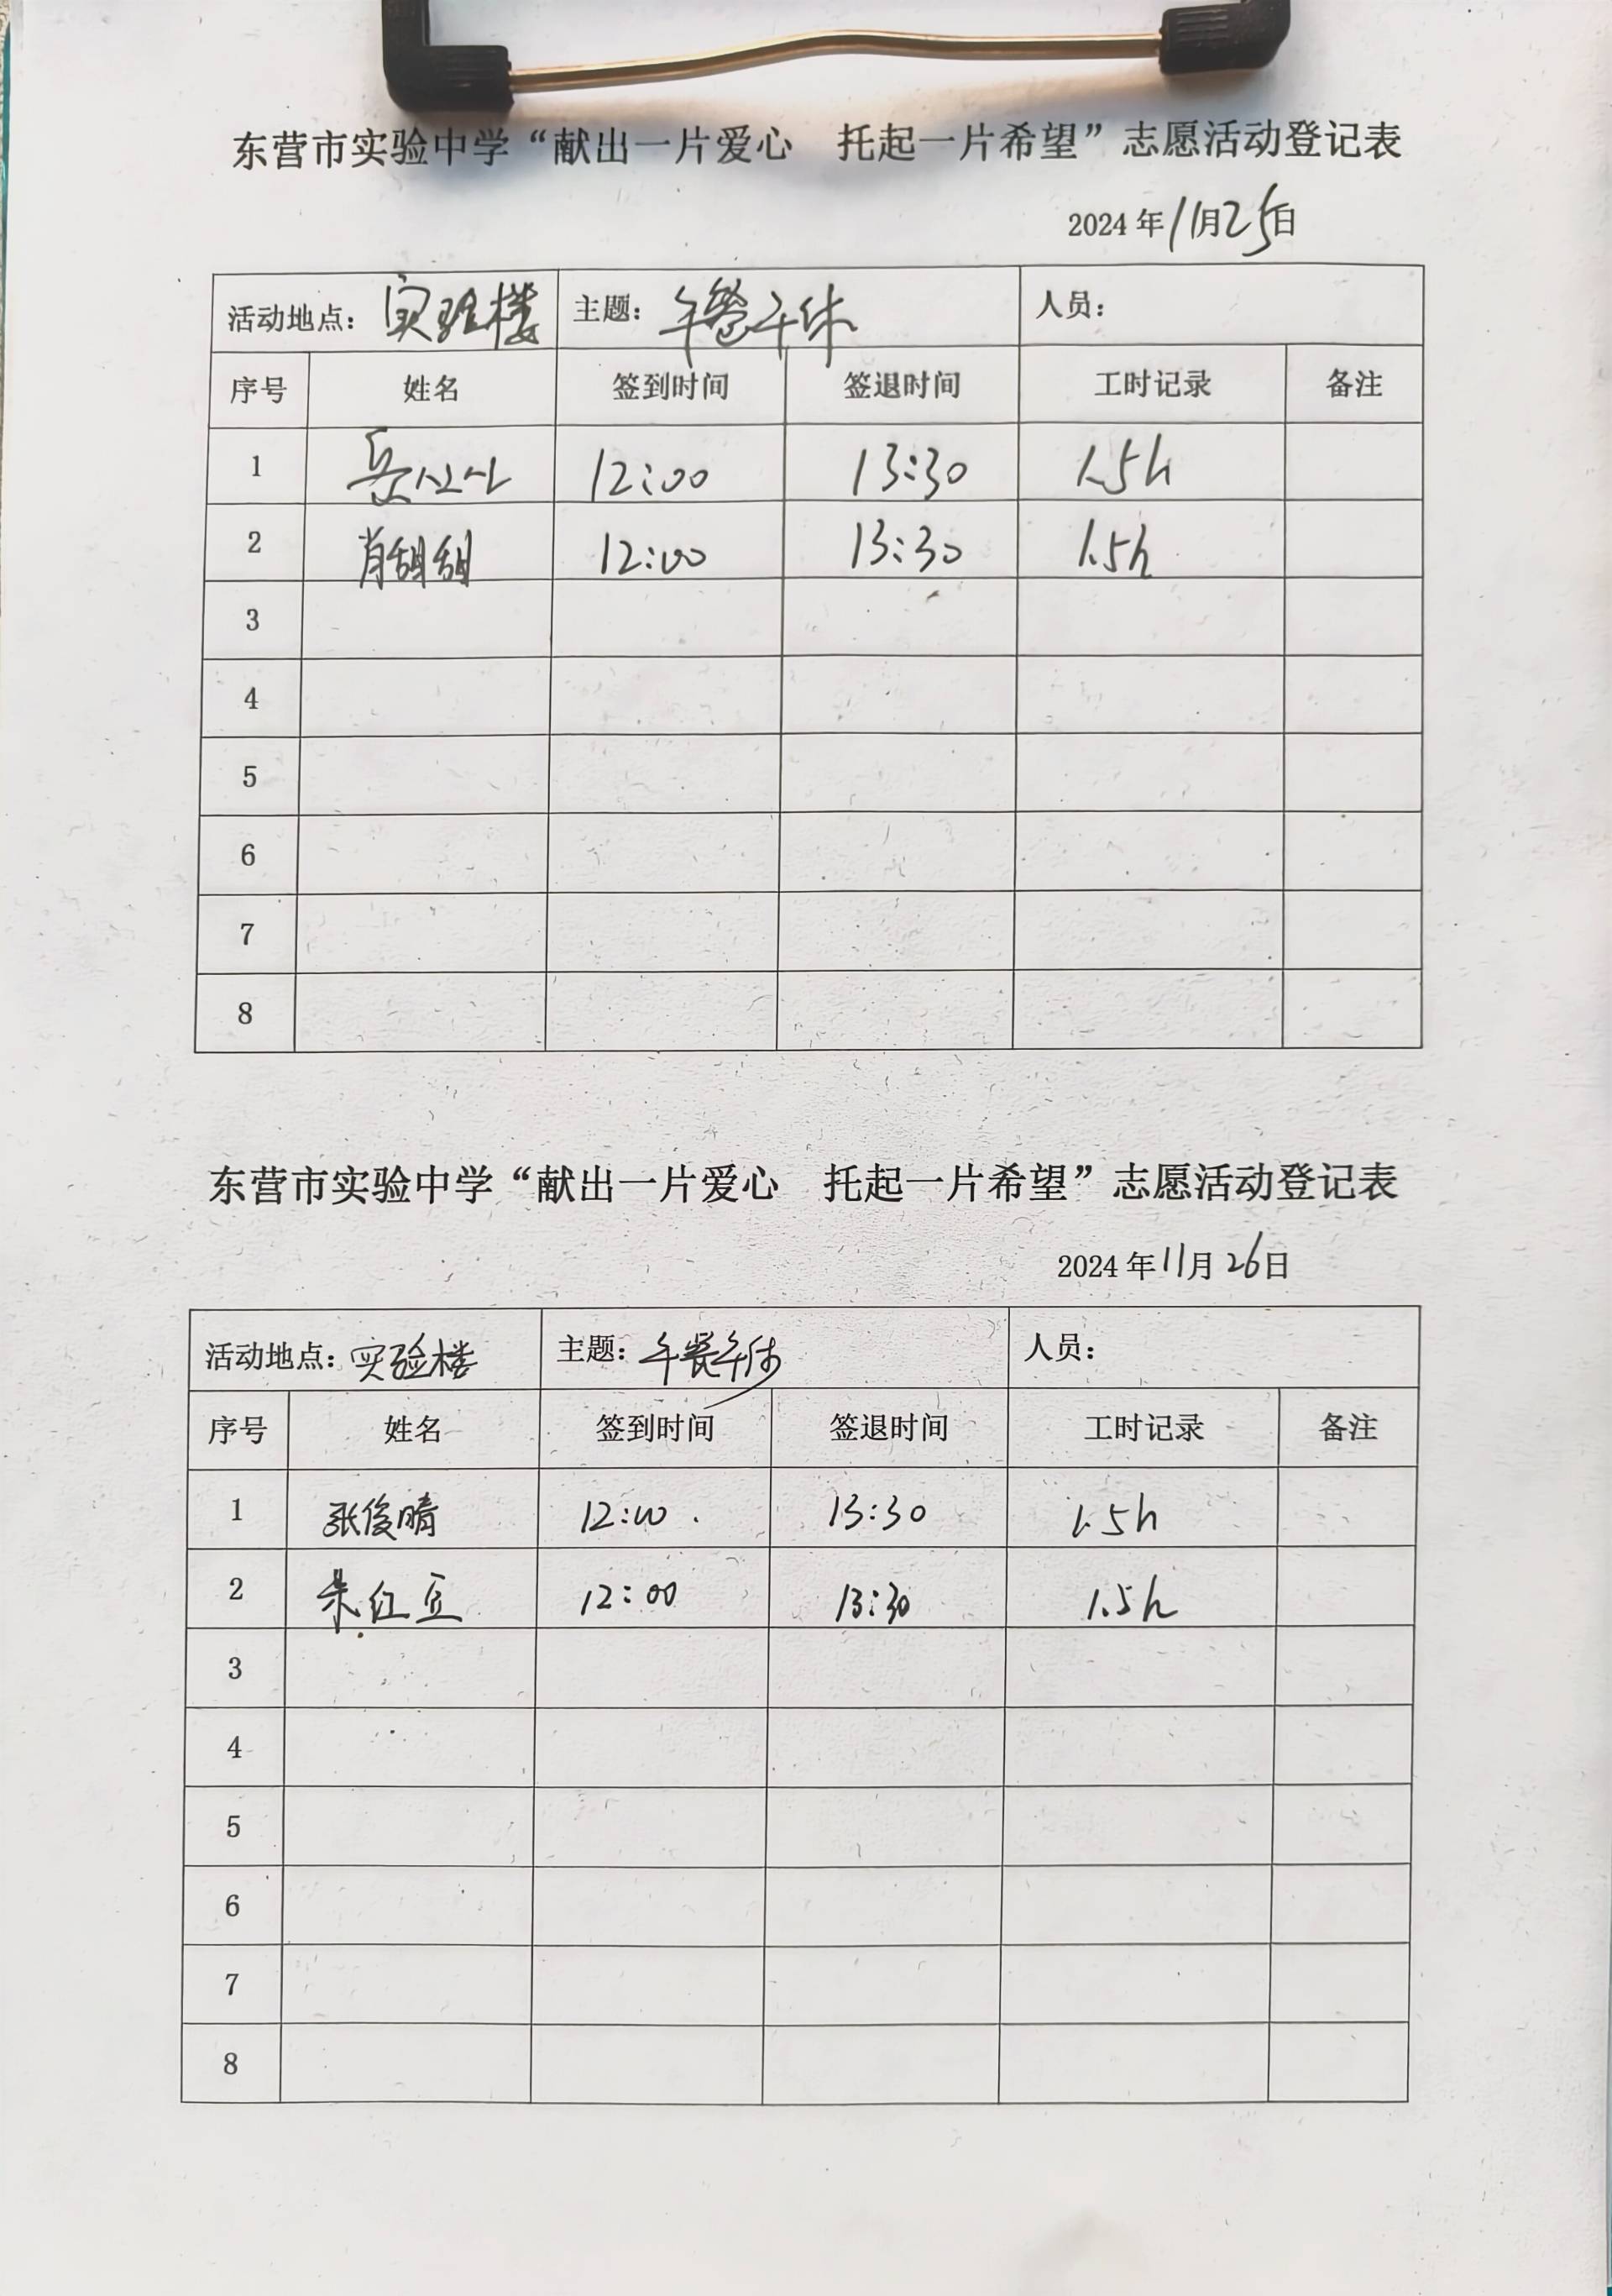 东营市实验中学“献出一片爱心 托起一片希望”志愿活动登记表
2024 年 11月25日
活动地点：实验楼 主题：午餐午休 人员：
序号 姓名 签到时间 签退时间 工时记录 备注
1 12:00 13:30 1.5h
2 肖甜甜 12:00 13:30 1.5h
3
4
5
6
7
8
东营市实验中学“献出一片爱心 托起一片希望”志愿活动登记表
2024 年 11月 26日
活动地点：实验楼 主题：午餐午休 人员：
序号 姓名 签到时间 签退时间 工时记录 备注
1 张俊晴 12:00 13:30 1.5h
2 朱红豆 12:00 13:30 1.5h
3
4
5
6
7
8